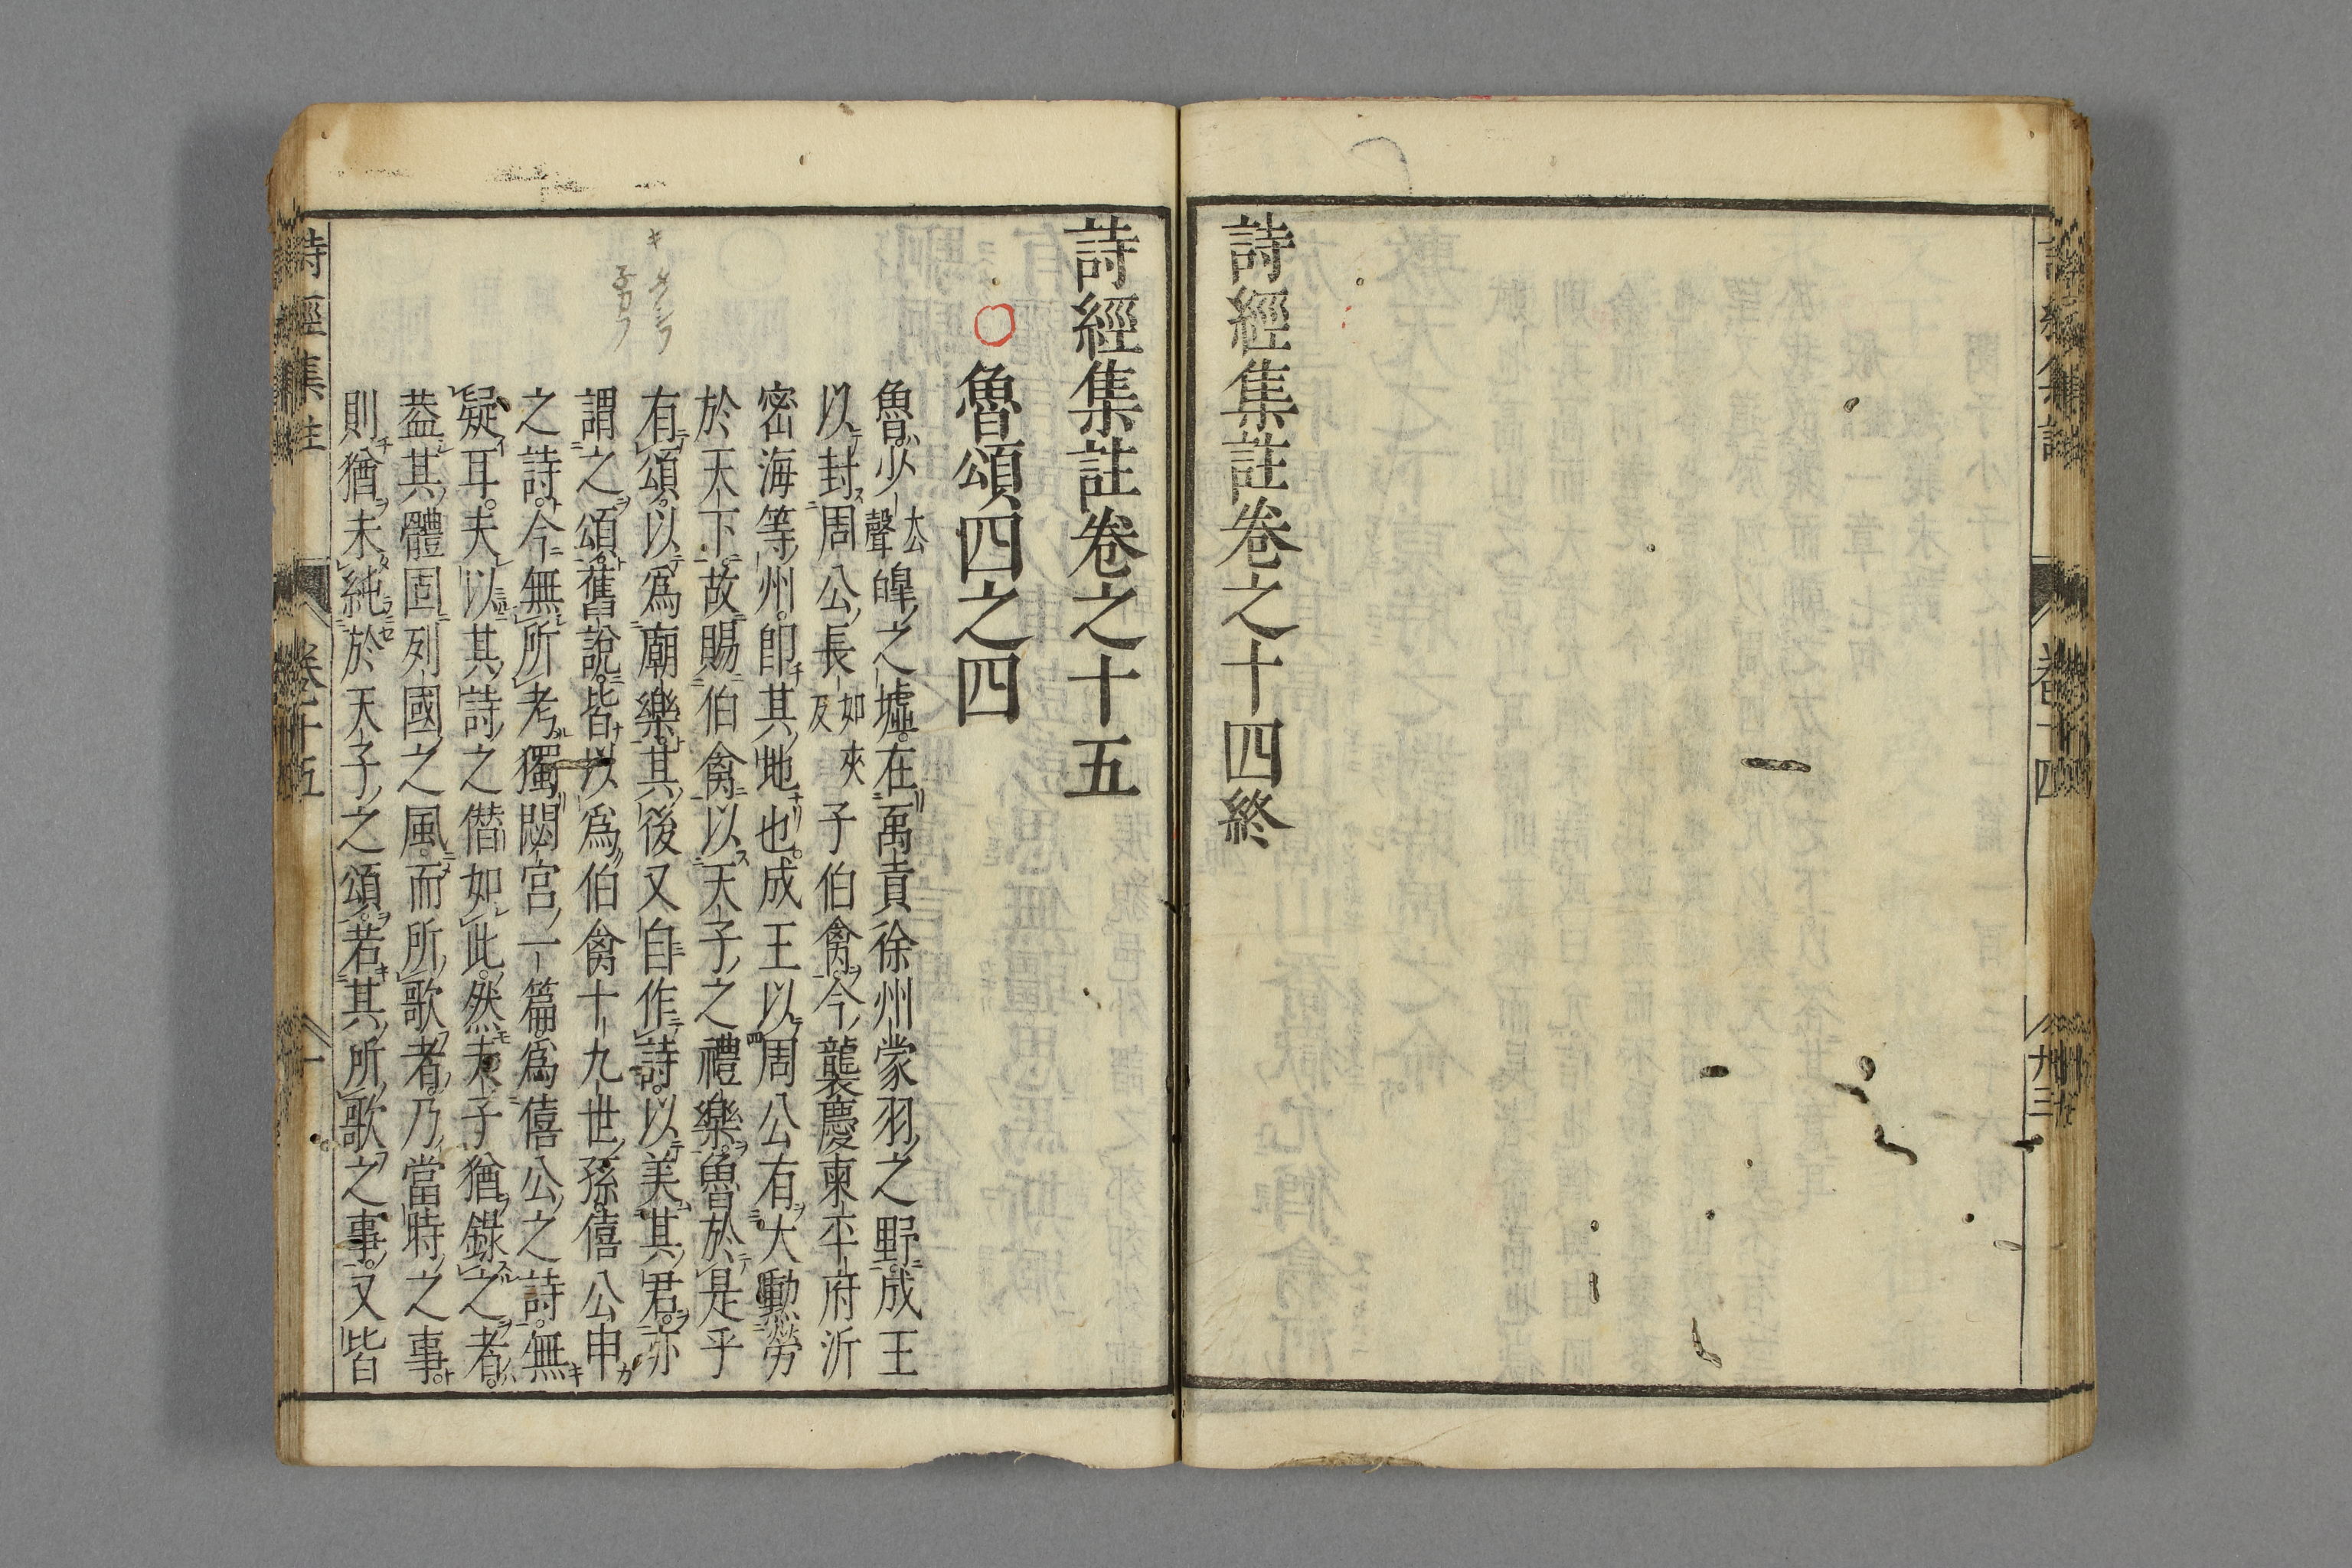 詩經集註卷之十四終
詩經集註卷之十五
魯頌四之四
魯少去聲皥之墟在禹貢徐州蒙羽之野成王
以封周公長如字夾子伯禽今襲慶東平府沂
密海等州卽其地也成王以周公有大勳勞
於天下故賜伯禽以天子之禮樂魯於是乎
有頌以爲廟樂其後又自作詩以美其君亦
謂之頌舊說皆以爲伯禽十九世孫僖公申
之詩今無所考獨閟宮一篇爲僖公之詩無
疑耳夫以其詩之僭如此然夫子猶錄之者
葢其體固列國之風而所歌者乃當時之事
則猶未純於天子之頌若其所歌之事又皆
詩經集註
卷十五
一